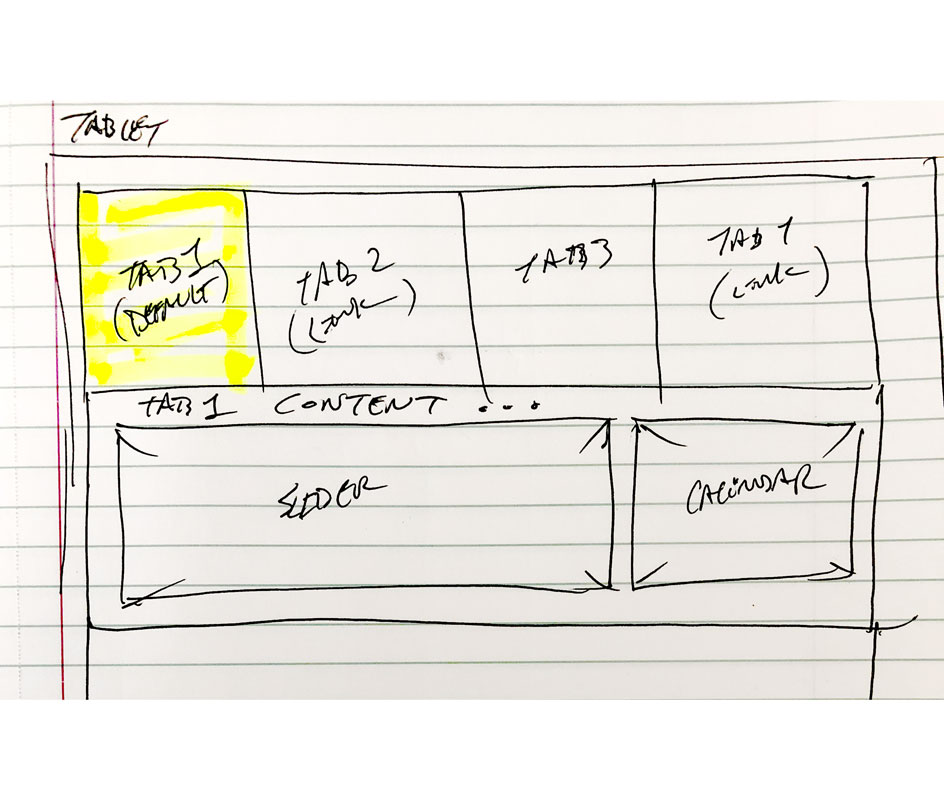 TABLET
TAB 1
(DEFAULT)
TAB 2
(LINK)
TAB 3
TAB 1
(LINK)
TAB 1 CONTENT ...
SLIDER
CALENDAR